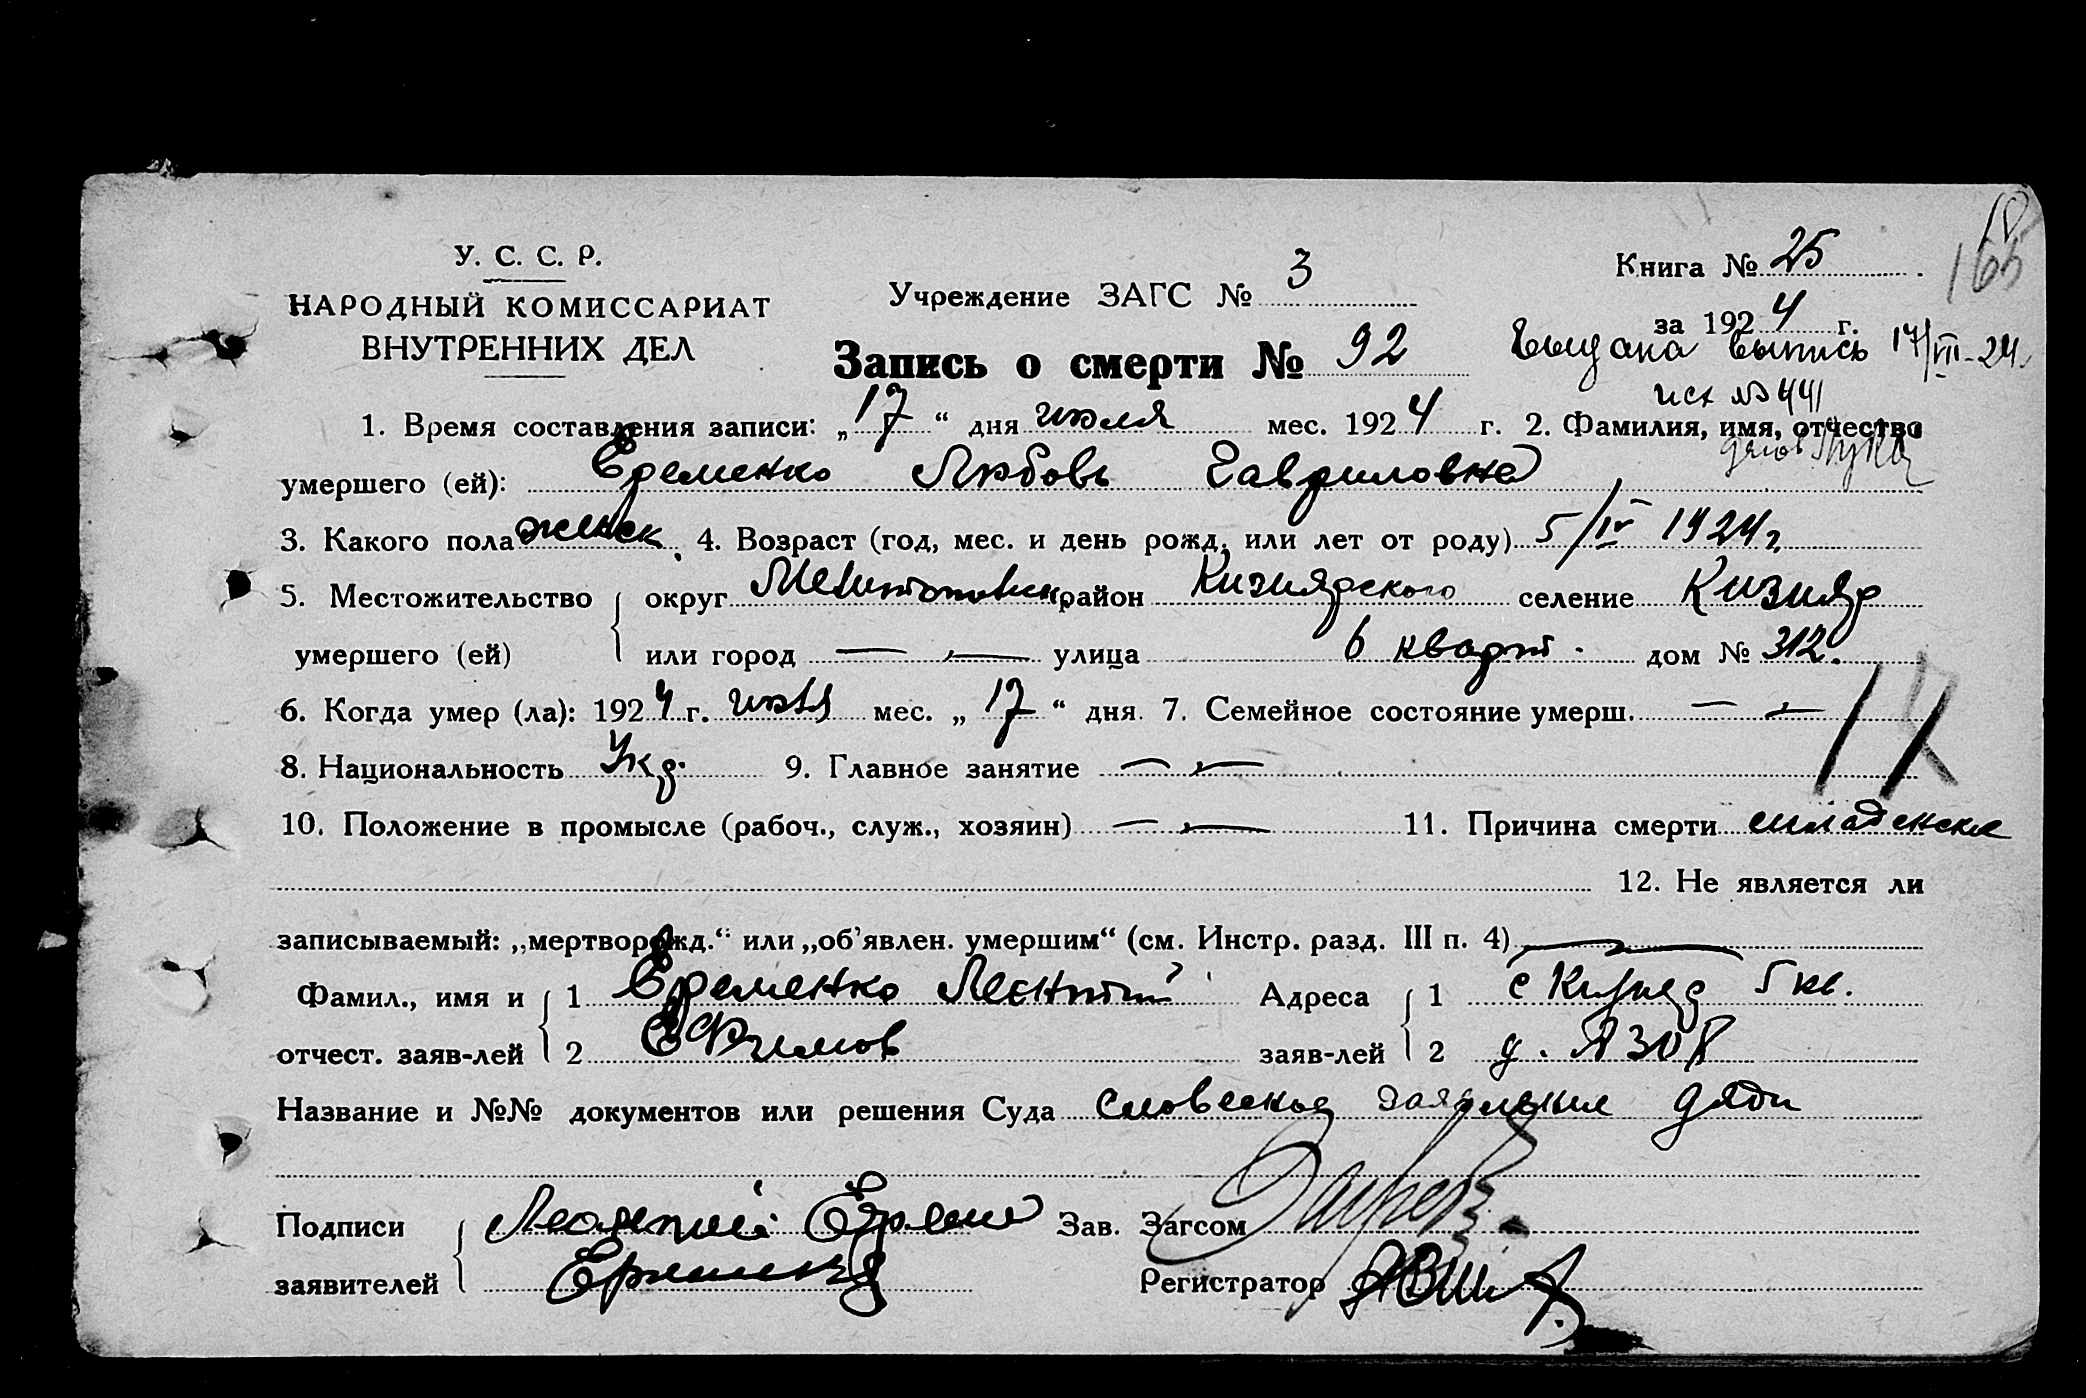 165
У. С. С. Р.
НАРОДНЫЙ КОМИССАРИАТ
ВНУТРЕННИХ ДЕЛ
Учреждение ЗАГС № 3
Книга № 25
за 1924 г.
Запись о смерти № 92
Выдана выпись 17/VII-24
исх № 441
1. Время составления записи: „17“ дня июля мес. 1924 г. 2. Фамилия, имя, отчество
умершего (ей): Еременко Любовь Гавриловна
3. Какого пола женск. 4. Возраст (год, мес. и день рожд. или лет от роду) 5/IV 1924 г
5. Местожительство округ Мелитопольск район Кизиярского селение Кизияр
умершего (ей) или город — — улица 6 кварт. дом № 312.
6. Когда умер (ла): 1924 г. июля мес. „17“ дня. 7. Семейное состояние умерш. — —
8. Национальность Укр. 9. Главное занятие — —
10. Положение в промысле (рабоч., служ., хозяин) — — 11. Причина смерти младенская
12. Не является ли
записываемый: „мертворожд.“ или „об’явлен. умершим“ (см. Инстр. разд. III п. 4) —
Фамил., имя и 1 Еременко Леонтий Адреса 1 с Кизияр 5 кв.
отчест. заяв-лей 2 Ефимов заяв-лей 2 д. № 308
Название и №№ документов или решения Суда словесное заявление дяди
Подписи Леонтий Ерем Зав. Загсом
заявителей Еременко Регистратор